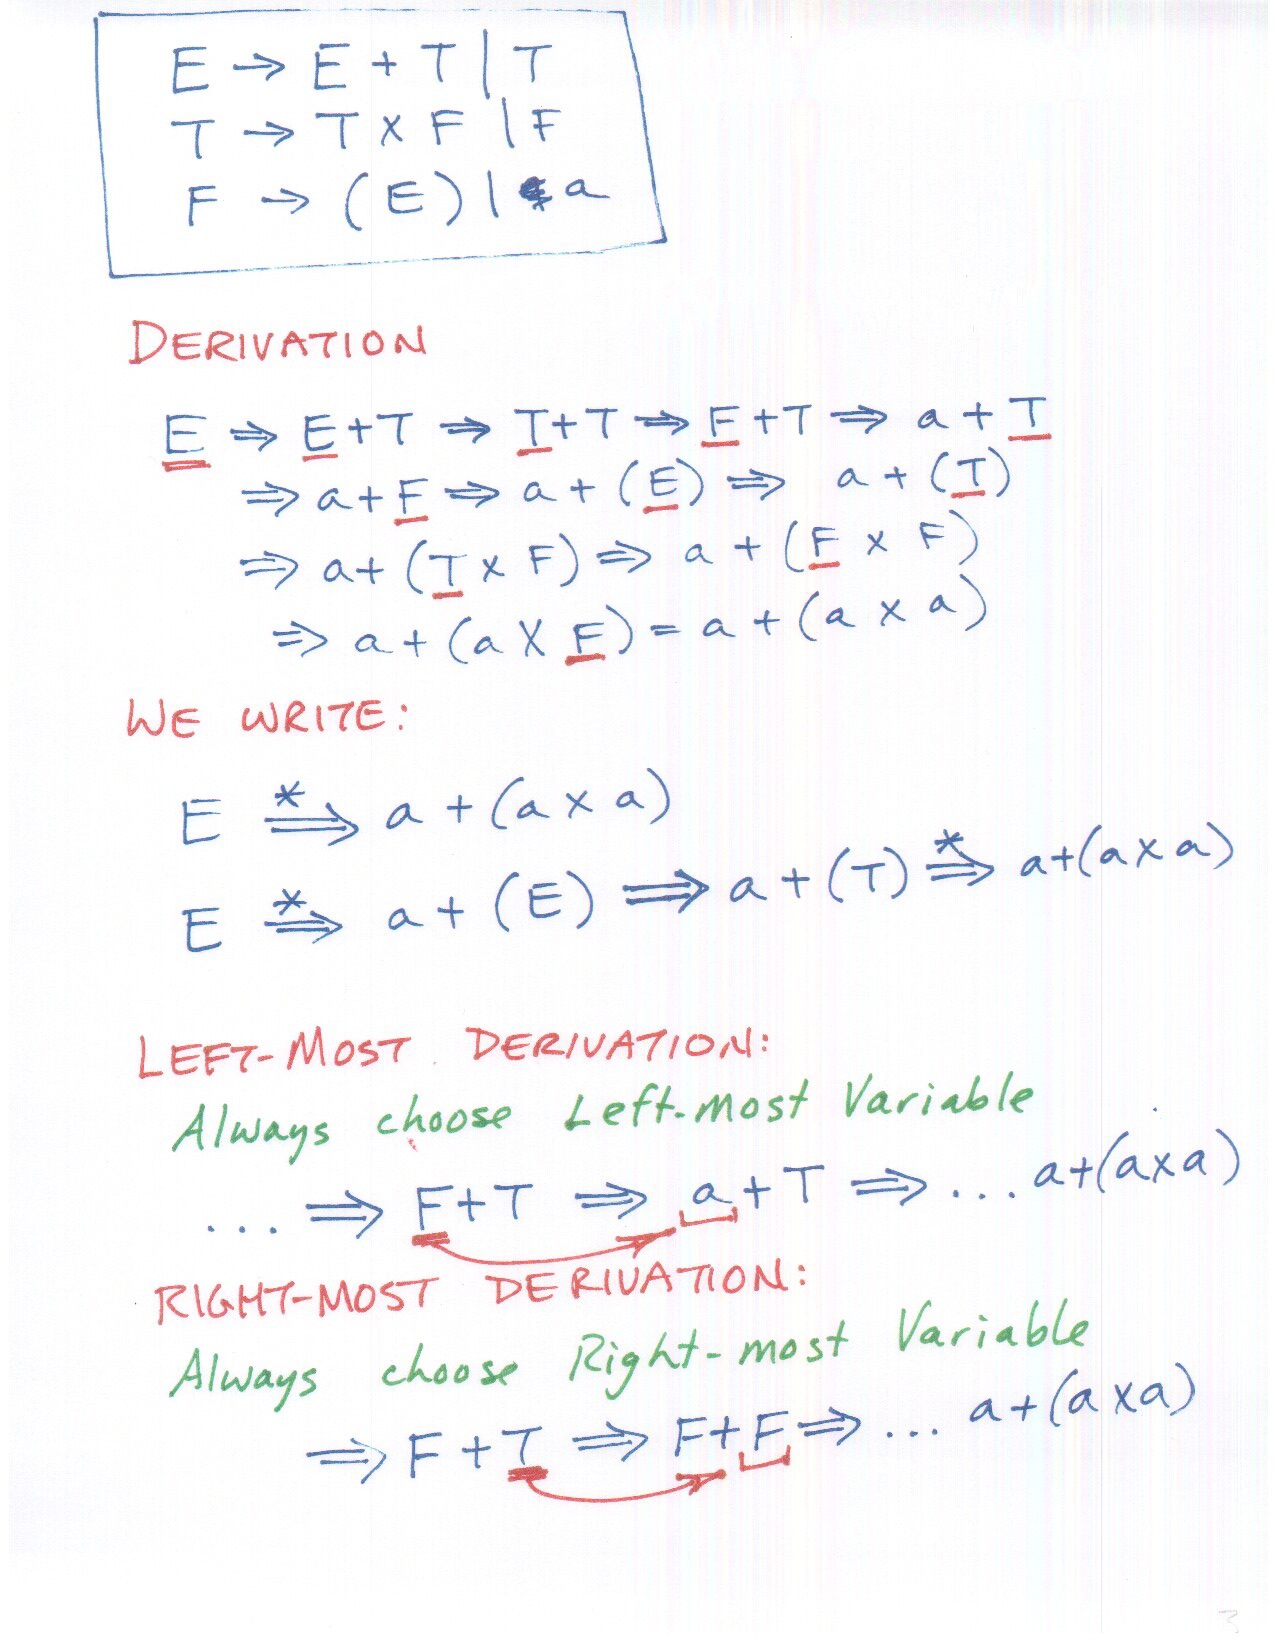 E → E + T | T
T → T x F | F
F → (E) | a
DERIVATION
E ⇒ E+T ⇒ T+T ⇒ F+T ⇒ a+T
⇒ a+F ⇒ a+(E) ⇒ a+(T)
⇒ a+(T x F) ⇒ a+(F x F)
⇒ a+(a X F) = a+(a x a)
WE WRITE:
E *⇒ a+(a x a)
E *⇒ a+(E) ⇒ a+(T) *⇒ a+(a x a)
LEFT-MOST DERIVATION:
Always choose Left-most Variable
... ⇒ F+T ⇒ a+T ⇒ ... a+(a x a)
RIGHT-MOST DERIVATION:
Always choose Right-most Variable
⇒ F+T ⇒ F+F ⇒ ... a+(a x a)
3